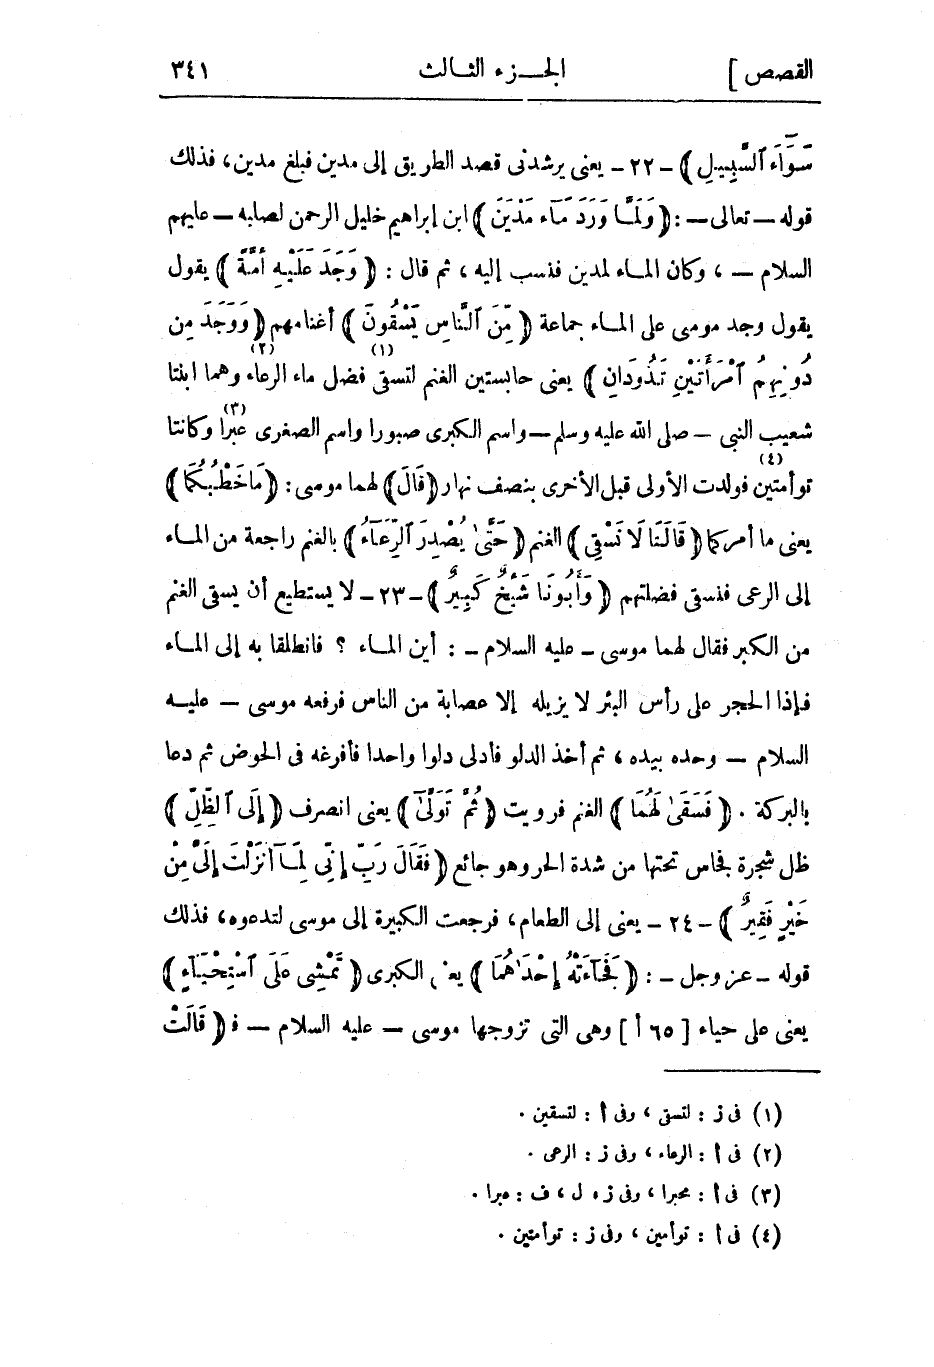 القصص ] الجـــزء الثــالث ٣٤١
سَوَآءَ ٱلسَّبِيلِ ﴾ – ٢٢ – يعنى يرشدنى قصد الطريق إلى مدين فبلغ مدين، فذلك
قوله – تعالى – : ﴿ وَلَمَّا وَرَدَ مَآءَ مَدْيَنَ ﴾ ابن إبراهيم خليل الرحمن لصلبه – عليهم
السلام – ، وكان المـاء لمدين فنسب إليه ، ثم قال : ﴿ وَجَدَ عَلَيْهِ أُمَّةً ﴾ يقول
يقول وجد موسى على المـاء جماعة ﴿ مِّنَ ٱلنَّاسِ يَسْقُونَ ﴾ أغنامهم ﴿ وَوَجَدَ مِن
دُونِهِمُ ٱمْرَأَتَيْنِ تَذُودَانِ ﴾ يعنى حابستين الغنم لتسقى (١) فضل ماء الرعاء (٢) وهما ابنتا
شعيب النبى – صلى الله عليه وسلم – واسم الكبرى صبورا واسم الصغرى عبرا (٣) وكانتا
توأمتين (٤) فولدت الأولى قبل الأخرى بنصف نهار ﴿ قَالَ ﴾ لهما موسى : ﴿ مَا خَطْبُكُمَا ﴾
يعنى ما أمركما ﴿ قَالَتَا لَا نَسْقِى ﴾ الغنم ﴿ حَتَّىٰ يُصْدِرَ ٱلرِّعَآءُ ﴾ بالغنم راجعة من المـاء
إلى الرعى فنسقى فضلتهم ﴿ وَأَبُونَا شَيْخٌ كَبِيرٌ ﴾ – ٢٣ – لا يستطيع أن يسقى الغنم
من الكبر فقال لهما موسى – عليه السلام – : أين المـاء ؟ فانطلقا به إلى المـاء
فإذا الحجر على رأس البئر لا يزيله إلا عصابة من الناس فرفعه موسى – عليـه
السلام – وحده بيده ، ثم أخذ الدلو فأدلى دلوا واحدا فأفرغه فى الحوض ثم دعا
بالبركة . ﴿ فَسَقَىٰ لَهُمَا ﴾ الغنم فرويت ﴿ ثُمَّ تَوَلَّىٰٓ ﴾ يعنى انصرف ﴿ إِلَى ٱلظِّلِّ ﴾
ظل شجرة فجلس تحتها من شدة الحر وهو جائع ﴿ فَقَالَ رَبِّ إِنِّى لِمَآ أَنزَلْتَ إِلَىَّ مِنْ
خَيْرٍ فَقِيرٌ ﴾ – ٢٤ – يعنى إلى الطعام ، فرجعت الكبيرة إلى موسى لتدعوه ، فذلك
قوله – عز وجل – : ﴿ فَجَآءَتْهُ إِحْدَىٰهُمَا ﴾ يعنى الكبرى ﴿ تَمْشِى عَلَى ٱسْتِحْيَآءٍ ﴾
يعنى على حياء [ ٦٥ أ ] وهى التى تزوجها موسى – عليه السلام – فـ ﴿ قَالَتْ
(١) فى ز : لتسق ، وفى أ : لتسقين .
(٢) فى أ : الرعاء ، وفى ز : الرعى .
(٣) فى أ : محبرا ، وفى ز ، ل ، ف : عبرا .
(٤) فى أ : توأمين ، وفى ز : توأمتين .